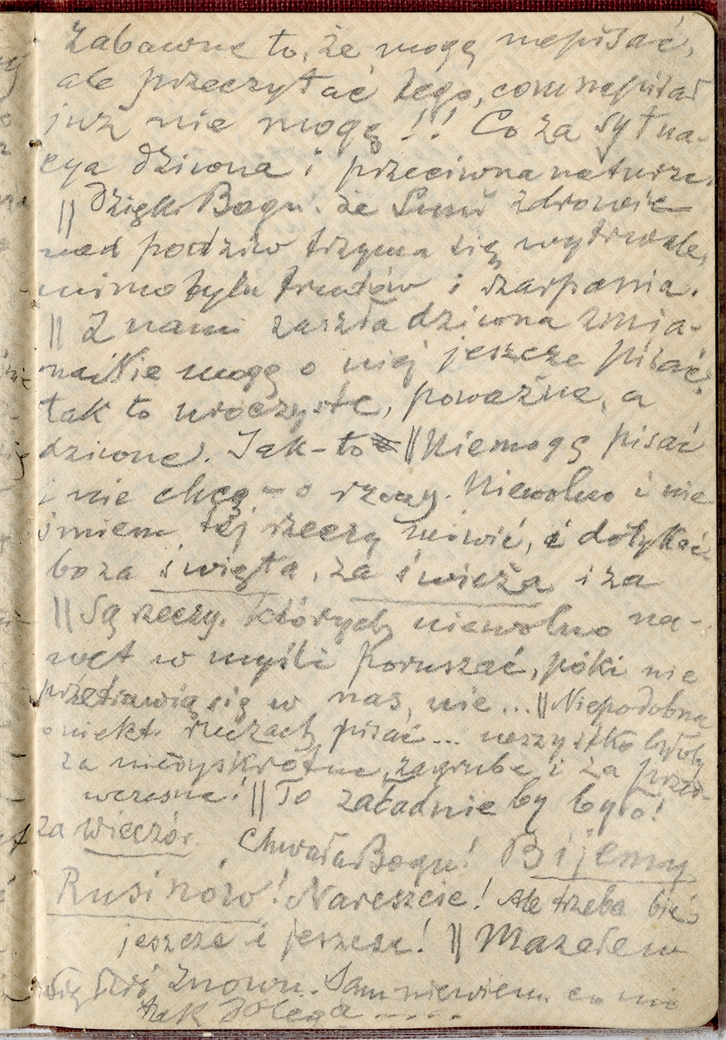 Zabawne to, że mogę napisać,
ale przeczytać tego, com napisał
już nie mogę!! Co za sytua-
cya dziwna i przeciwna naturze.
|| Dzięki Bogu. że zdrowie
nad podziw trzyma się wytrwale,
mimo tylu trudów i szarpania.
|| Z nami zaszła dziwna zmia-
na. Nie mogę o niej jeszcze pisać,
tak to uroczyste, poważne, a
dziwne. Jak-to || Niemogę pisać
i nie chcę - o rzeczy. Niewolno i nie
śmiem tej rzeczy mówić, i dotykać
bo za święta, za świeża i za
|| Są rzeczy, których niewolno na-
wet w myśli poruszać, póki nie
przetrawią się w nas, nie ... || Niepodobna
o niekt. rzeczach pisać ... wszystko byłoby
za niedyskrotne, zagrube i za przed-
wczesne! || To załadnie by było!
za wieczór. Chwała Bogu! Bijemy
Rusinów! Nareszcie! Ale trzeba bić
jeszcze i jeszcze! || Mazałem
się dziś znowu. Sam niewiem co mi
tak dolega .....